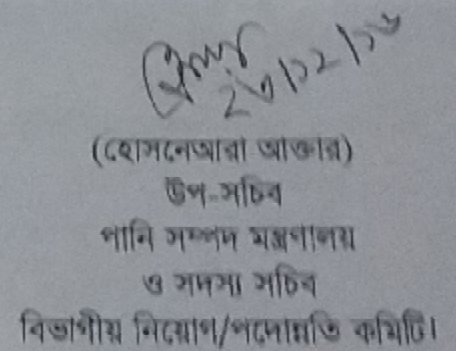 ২৩/১২/১৩
(হোসনেআরা আক্তার)
উপ-সচিব
পানি সম্পদ মন্ত্রণালয়
ও সদস্য সচিব
বিভাগীয় নিয়োগ/পদোন্নতি কমিটি।